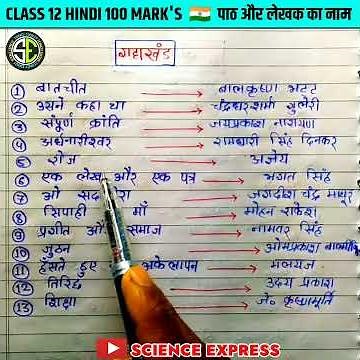 CLASS 12 HINDI 100 MARK'S पाठ और लेखक का नाम
गद्यखंड
① बातचीत → बालकृष्ण भटट
② उसने कहा था → चंद्रधर शर्मा गुलेरी
③ संपूर्ण क्रांति → जयप्रकाश नारायण
④ अर्धनारीश्वर → रामधारी सिंह दिनकर
⑤ रोज → अज्ञेय
⑥ एक लेख और एक पत्र → भगत सिंह
⑦ ओ सदा → जगदीश चंद्र माथुर
⑧ सिपाही माँ → मोहन राकेश
⑨ प्रगीत और समाज → नामवर सिंह
⑩ जुठन → ओमप्रकाश
⑪ हँसते हुए अकेलापन → मलयज
⑫ तिरिछ → उदय प्रकाश
⑬ शिक्षा → जे० कृष्णमूर्ति
SCIENCE EXPRESS